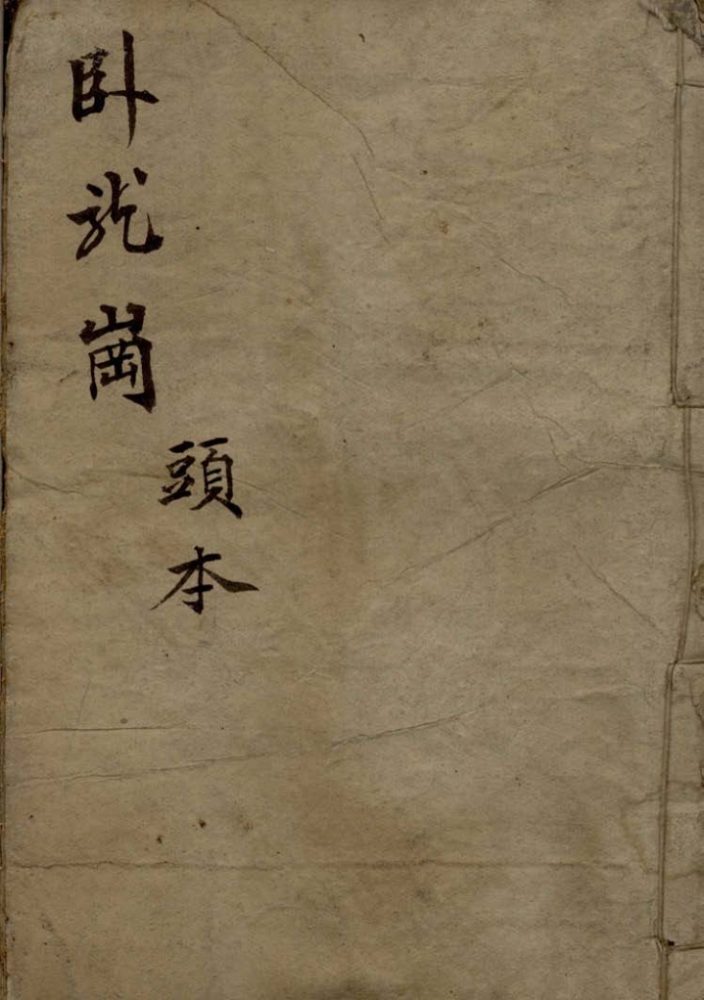 臥龍崗
頭本